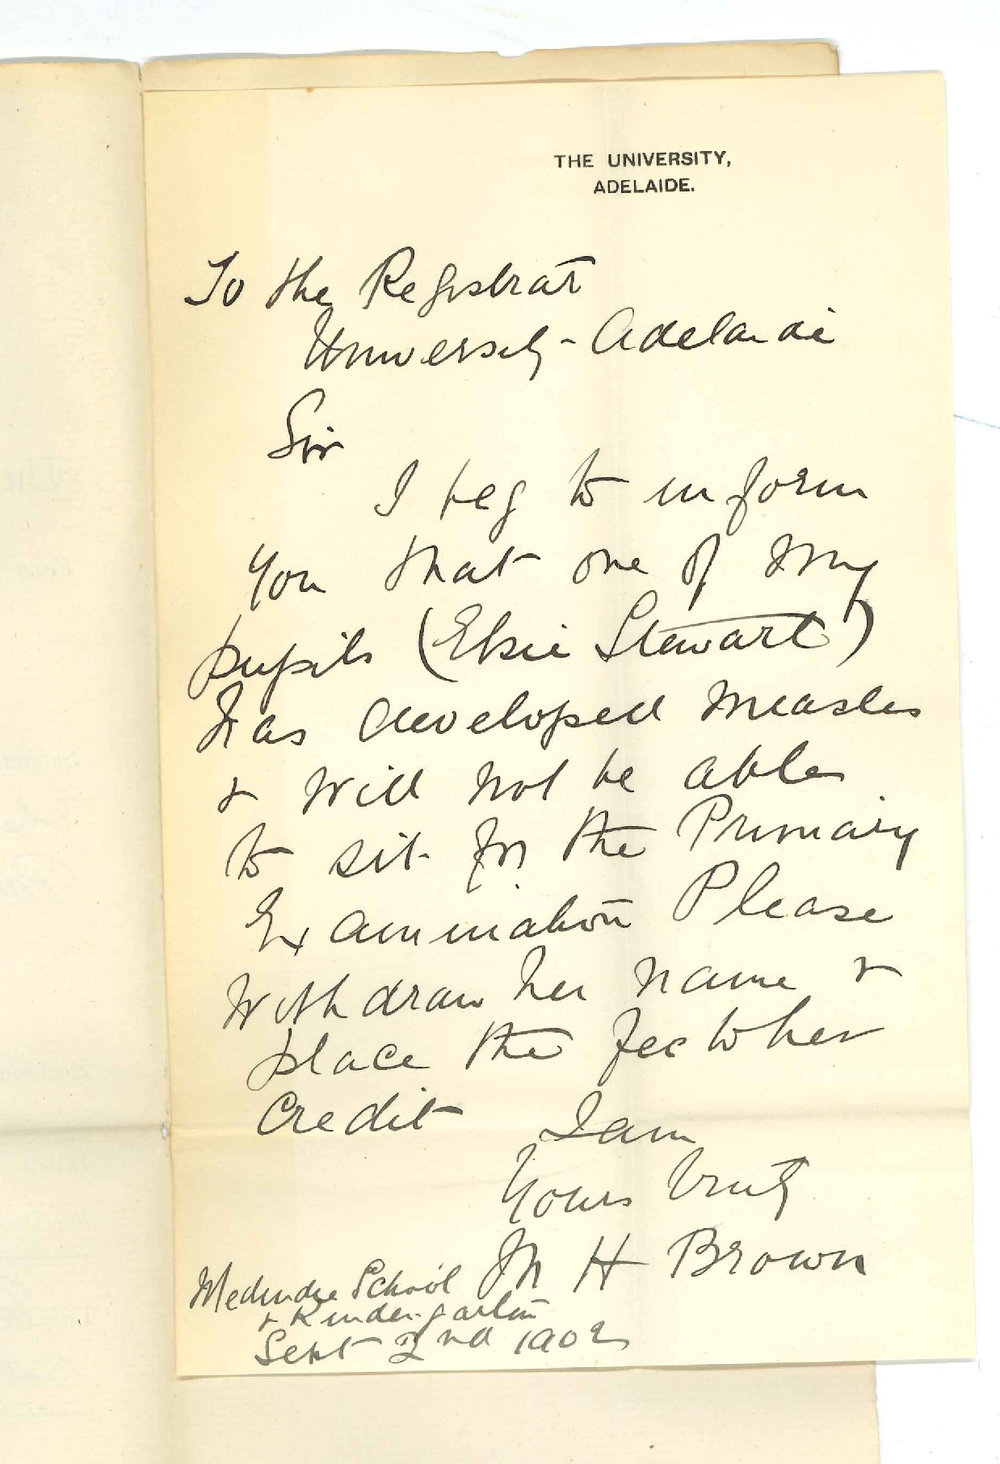 THE UNIVERSITY,
ADELAIDE.
To the Registrar
University - Adelaide
Sir
I beg to inform
you that one of my
pupils (Elsie Stewart)
has developed measles
& will not be able
to sit for the Primary
Examination Please
withdraw her name &
place the fee to her
credit I am
Yours truly
M H Brown
Medindie School
& Kindergarten
Sept 2nd 1902